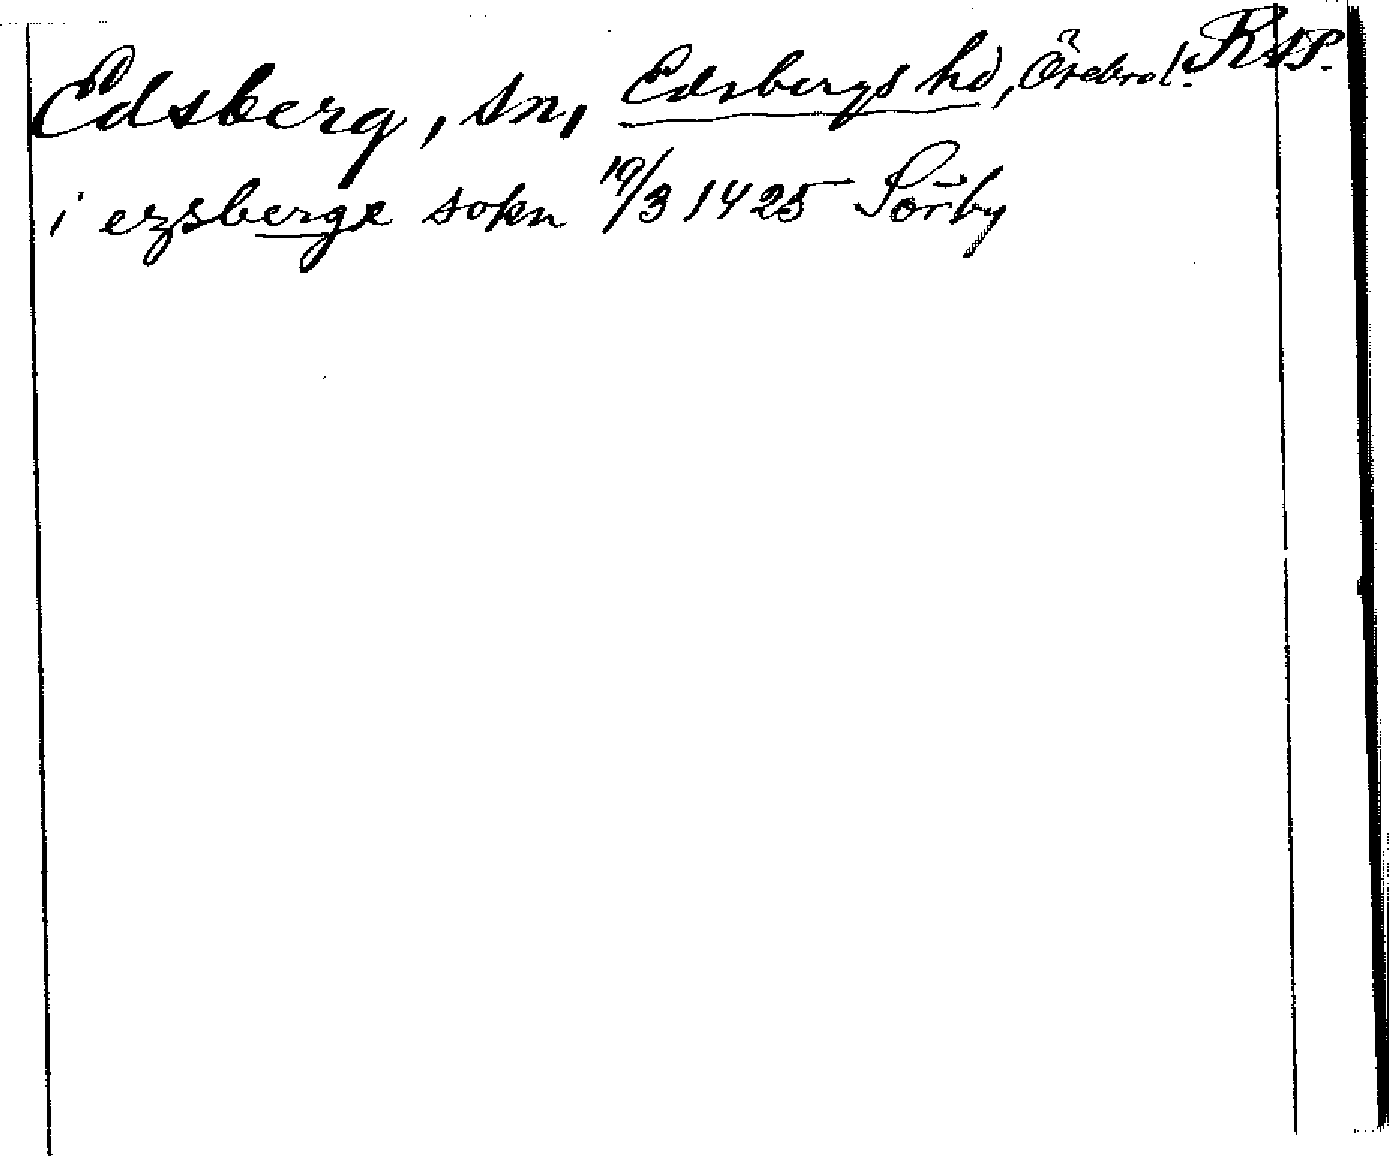 Edsberg, sn, Edsbergs hd, Örebro l. RAP.
i ezsberge sokn 19/3 1425 Sörby